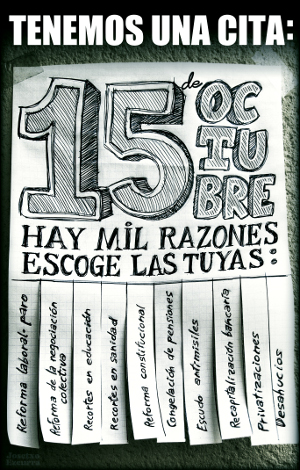 TENEMOS UNA CITA:
15 de OC
TU
BRE
HAY MIL RAZONES
ESCOGE LAS TUYAS:
Reforma laboral-paro
Reforma de la negociación
colectiva
Recortes en educación
Recortes en sanidad
Reforma constitucional
Congelación de pensiones
Escudo antimisiles
Recapitalización bancaria
Privatizaciones
Desahucios